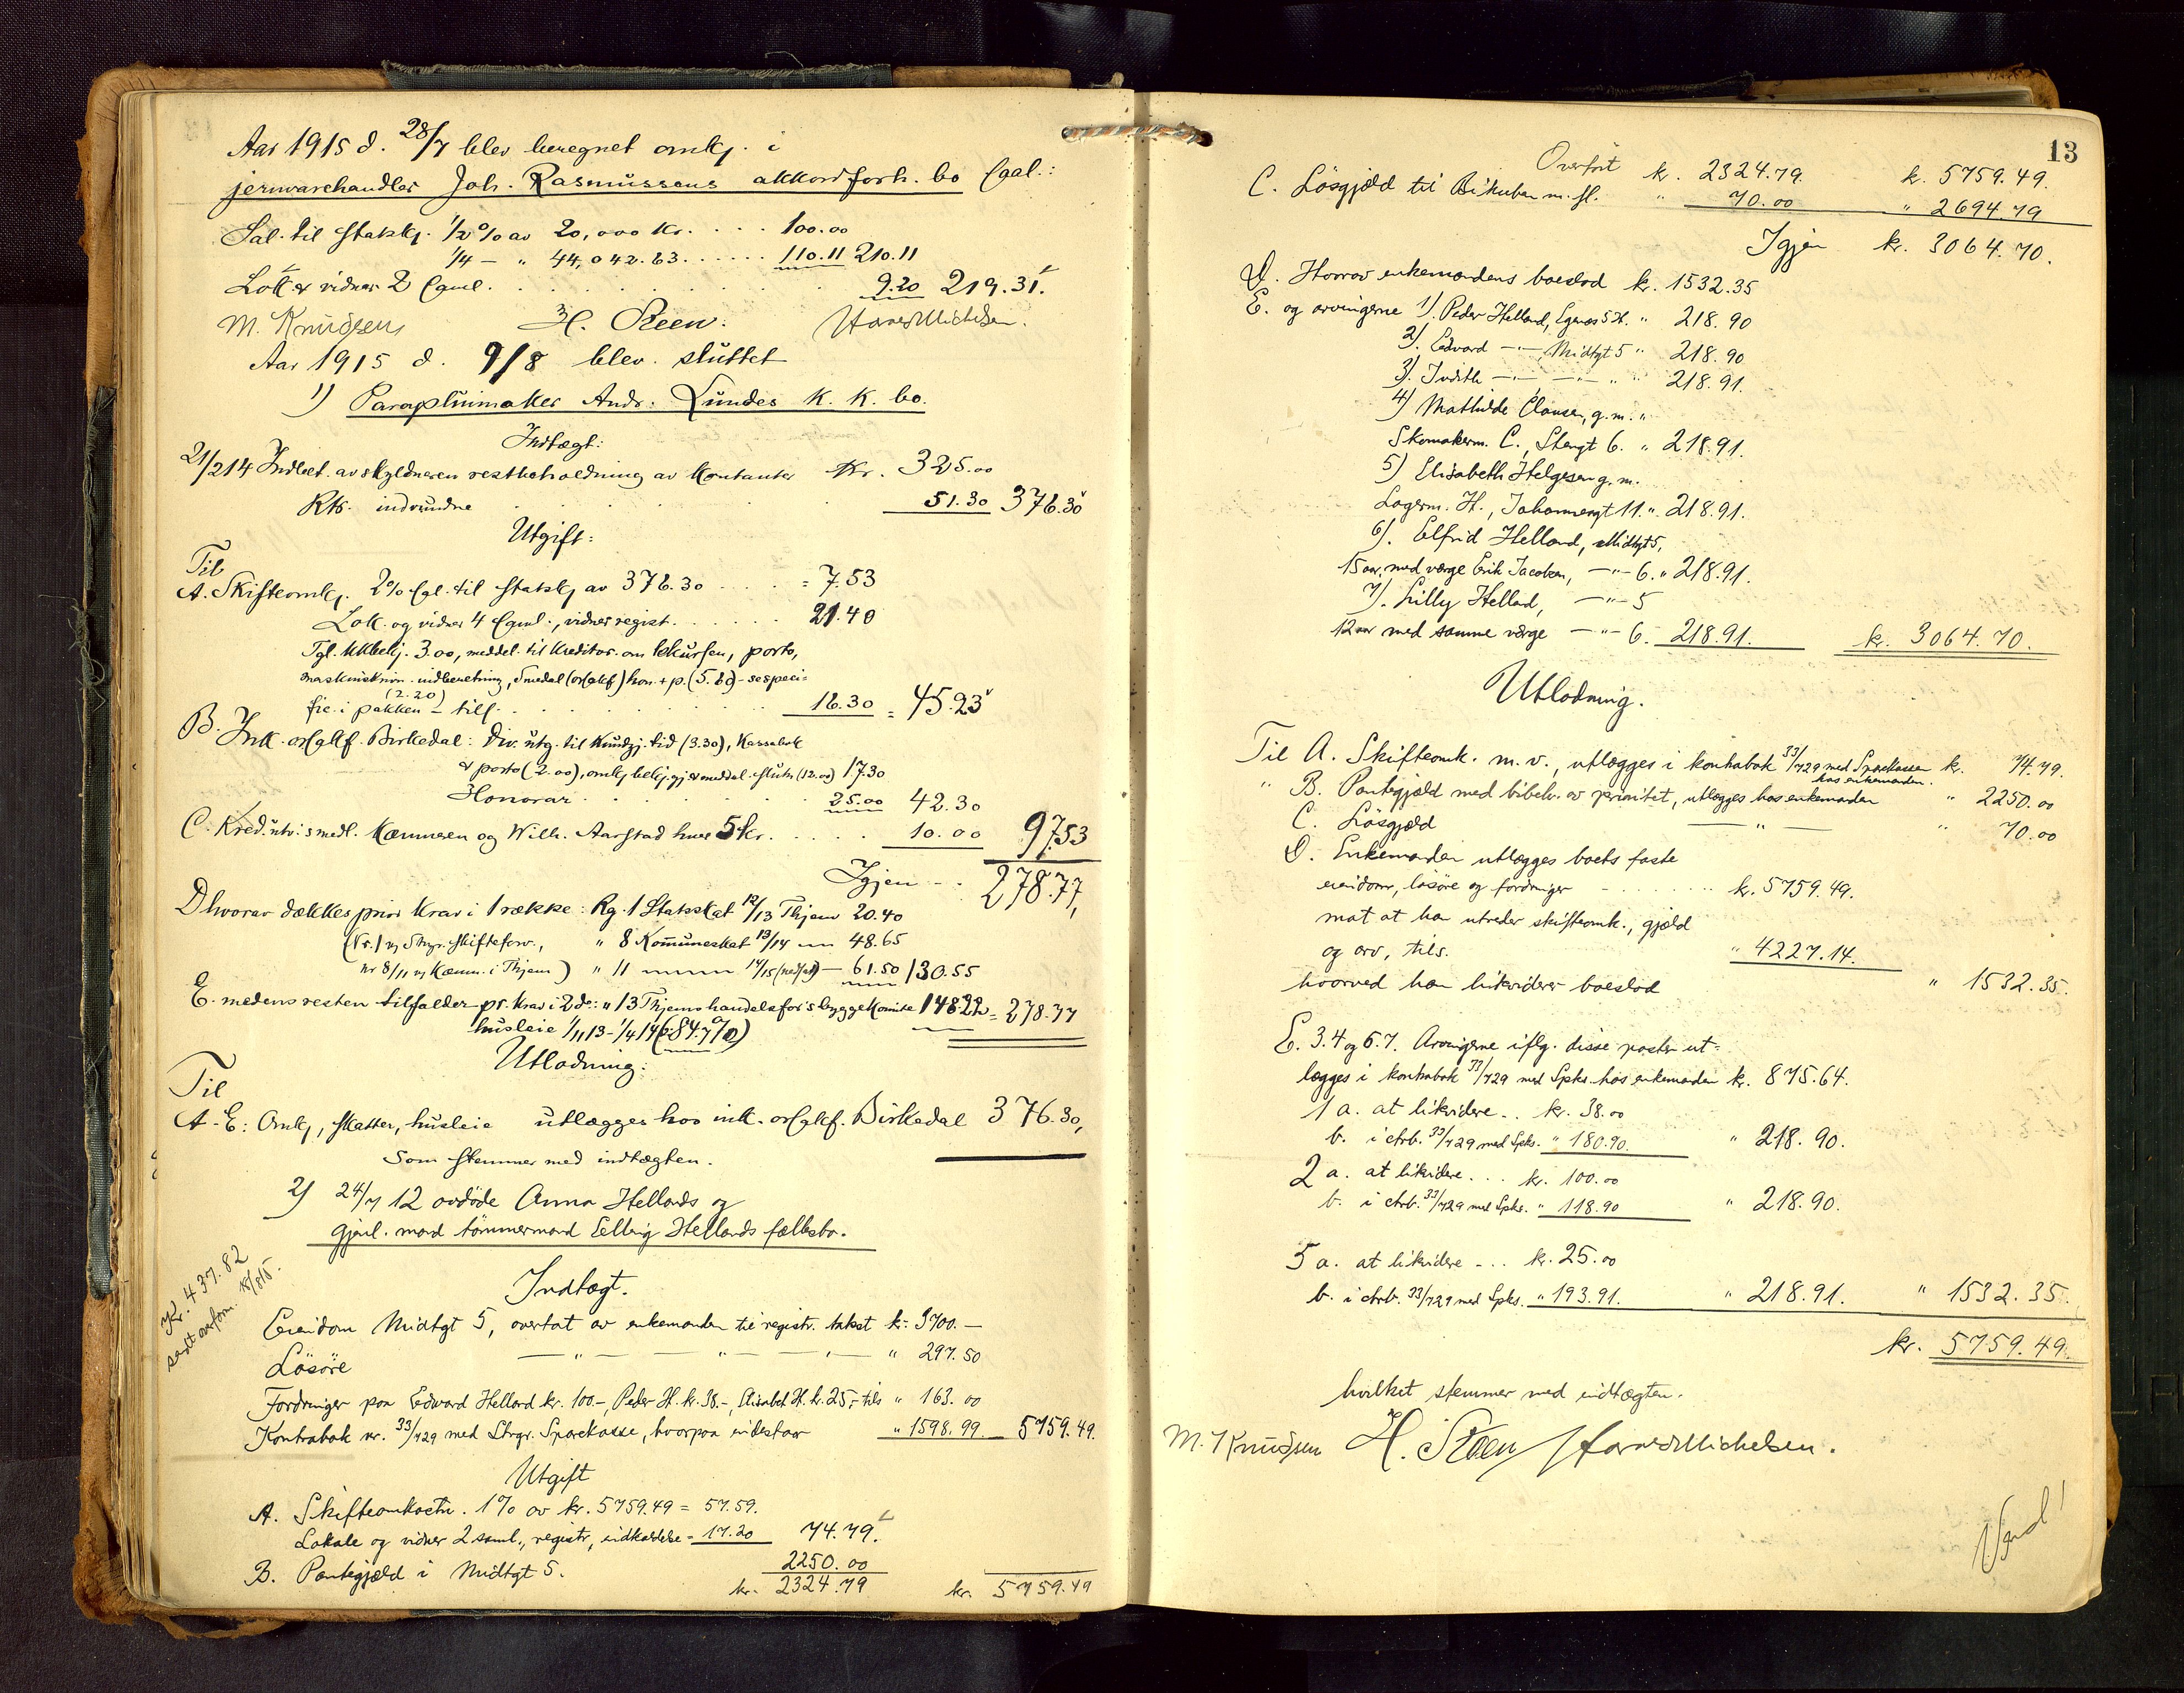 Aar 1915 d. 28/7 blev beregnet omkj. i
jernvarehandler Joh. Rasmussens akkordforh. bo
Sal. til statskj. 1/2 % av 20,000 kr. . . . . 100.00
1/4 — " 44,042.83 . . . . . . 110.11 210.11
Lok. & vidner 2 saml. . . . . . 9.20 219.31.
M. Knudsen H. Steen. Hans Michelsen.
Aar 1915 d. 9/8 blev sluttet
1) Paraplüimaker Andr. Lundes K. K. bo.
Indtægt:
21/214 Indbet. av skyldneren restbeholdning av kontanter Kr. 325.00
Rtr. indvundne 51.30 376.30
Utgift:
Til
A. Skifteomkj. 2% sal. til statskj av 376.30 . . . = 7.53
Lok. og vidner 4 saml., vidner regist. . . . . . 21.40
Tgl. Ukbekj. 3.00, meddel. til kreditor. om konkursen, porto,
maskinskrivn. indberetning, Smedal (orsakf) hon. + p. (5.80) - sespeci=
(2.20)
fic. i pakken - tils. . . . . . 16.30 = 45.23
B. Ink. orsakf. Birkedal: Div. utg. til Kundgj. tid (3.30), Kassabok
& porto (2.00), omkj bekj.gj & meddel. slutn (12.00) 17.30
Honorar . . . . . . 25.00 42.30
C. Kred.utv.: smedl. Kæmneren og Wilh. Aarstad hver 5 kr. . . . . 10.00 97.53
Igjen - . . 278.77,
D hvorav dækkes prior krav i 1 række: Rg. 1 Statsskat 12/13 Thjem 20.40
(Nr. 1 v/ Stvgr. skifteforv., " 8 Kommuneskat 13/14 — 48.65
nr 8/11 v/ Kæmn. i Thjem) " 11 14/15 (nedsat) — 61.50 130.55
E. medens resten tilfalder pr. krav i 2 do: " 13 Thjems handelsfor's byggekomite 148.22 = 278.77
husleie 1/11 13 - 1/4 14 (284.70)
Utlodning:
Til
A - E: Omkj, skatter, husleie utlægges hos ink. orsakf. Birkedal 376.30,
Som stemmer med indtægten.
2) 24/7 12 avdöde Anna Hellands og
gjenl. mand tömmermand Elling Hellands fællesbo.
Kr. 437.82
sendt overform. 18/8 15.
Indtægt.
Eiendom Midtgt 5, overtat av enkemanden til registr. takst kr. 3700.—
Lösöre — " — — " — — " — " 297.50
Fordringer paa Edvard Helland kr. 100.-, Peder H. kr. 38.-, Elisabet H. kr. 25,- tils " 163.00
Kontrabok nr. 33/729 med Stvgr. Sparekasse, hvorpaa indestaar " 1598.99 5759.49.
Utgift
A. Skifteomkostn. 1% av kr. 5759.49 = 57.59.
Lokale og vidner 2 saml., registr, indkaldelse = 17.20 74.79.
B. Pantegjæld i Midtgt 5. 2250.00
kr. 2324.79 kr. 5759.49
13
Overfört kr. 2324.79. kr. 5759.49.
C. Lösgjæld til Bikuben m. fl. " 70.00 " 2694.79
Igjen kr. 3064.70.
D. Hvorav enkemandens boeslod kr. 1532.35
E. og arvingerne 1). Peder Helland, Egenæs 5 H. " 218.90
2). Edvard —"—, Midtgt 5 " 218.90
3). Judith —"— —"— " " 218.91.
4) Mathilde Clausen, g. m. "
Skomakerm. C., Stengt 6. " 218.91.
5) Elisabeth Helgesen g. m.
Lagerm. H., Johannesgt 11. " 218.91.
6). Elfrid Helland, Midtgt 5,
15 aar, med værge Erik Jacobsen, —"— 6. " 218.91.
7). Lilly Helland, —"— 5
12 aar med samme værge —"— 6. 218.91. kr. 3064.70.
Utlodning.
Til A. Skifteomk. m. v., utlægges i kontrabok 33/729 med Sparekassen kr. 74.79.
hos enkemanden.
" B. Pantegjæld med bibeh. av prioritet, utlægges hos enkemanden " 2250.00
C. Lösgjæld — " — " 70.00
D. Enkemanden utlægges boets faste
eiendom, lösöre og fordringer . . . . . . . kr. 5759.49.
mot at han utreder skifteomk., gjæld
og arv, tils. " 4227.14.
hvorved han likviderer boeslod " 1532.35.
E. 3. 4 og 6. 7. Arvingerne iflg. disse poster ut=
lægges i kontrabok 33/729 med Spks. hos enkemanden kr. 875.64.
1 a. at likvidere . . kr. 38.00
b. i ctrb. 33/729 med Spks. " 180.90. " 218.90.
2 a. at likvidere . . . kr. 100.00
b. i ctrb. 33/729 med Spks. " 118.90 " 218.90.
5 a. at likvidere - . . kr. 25.00
b. i ctrb. 33/729 med Spks. " 193.91. " 218.91. " 1532.35.
kr. 5759.49.
hvilket stemmer med indtægten.
M. Knudsen H. Steen Hans Michelsen.
Vend!